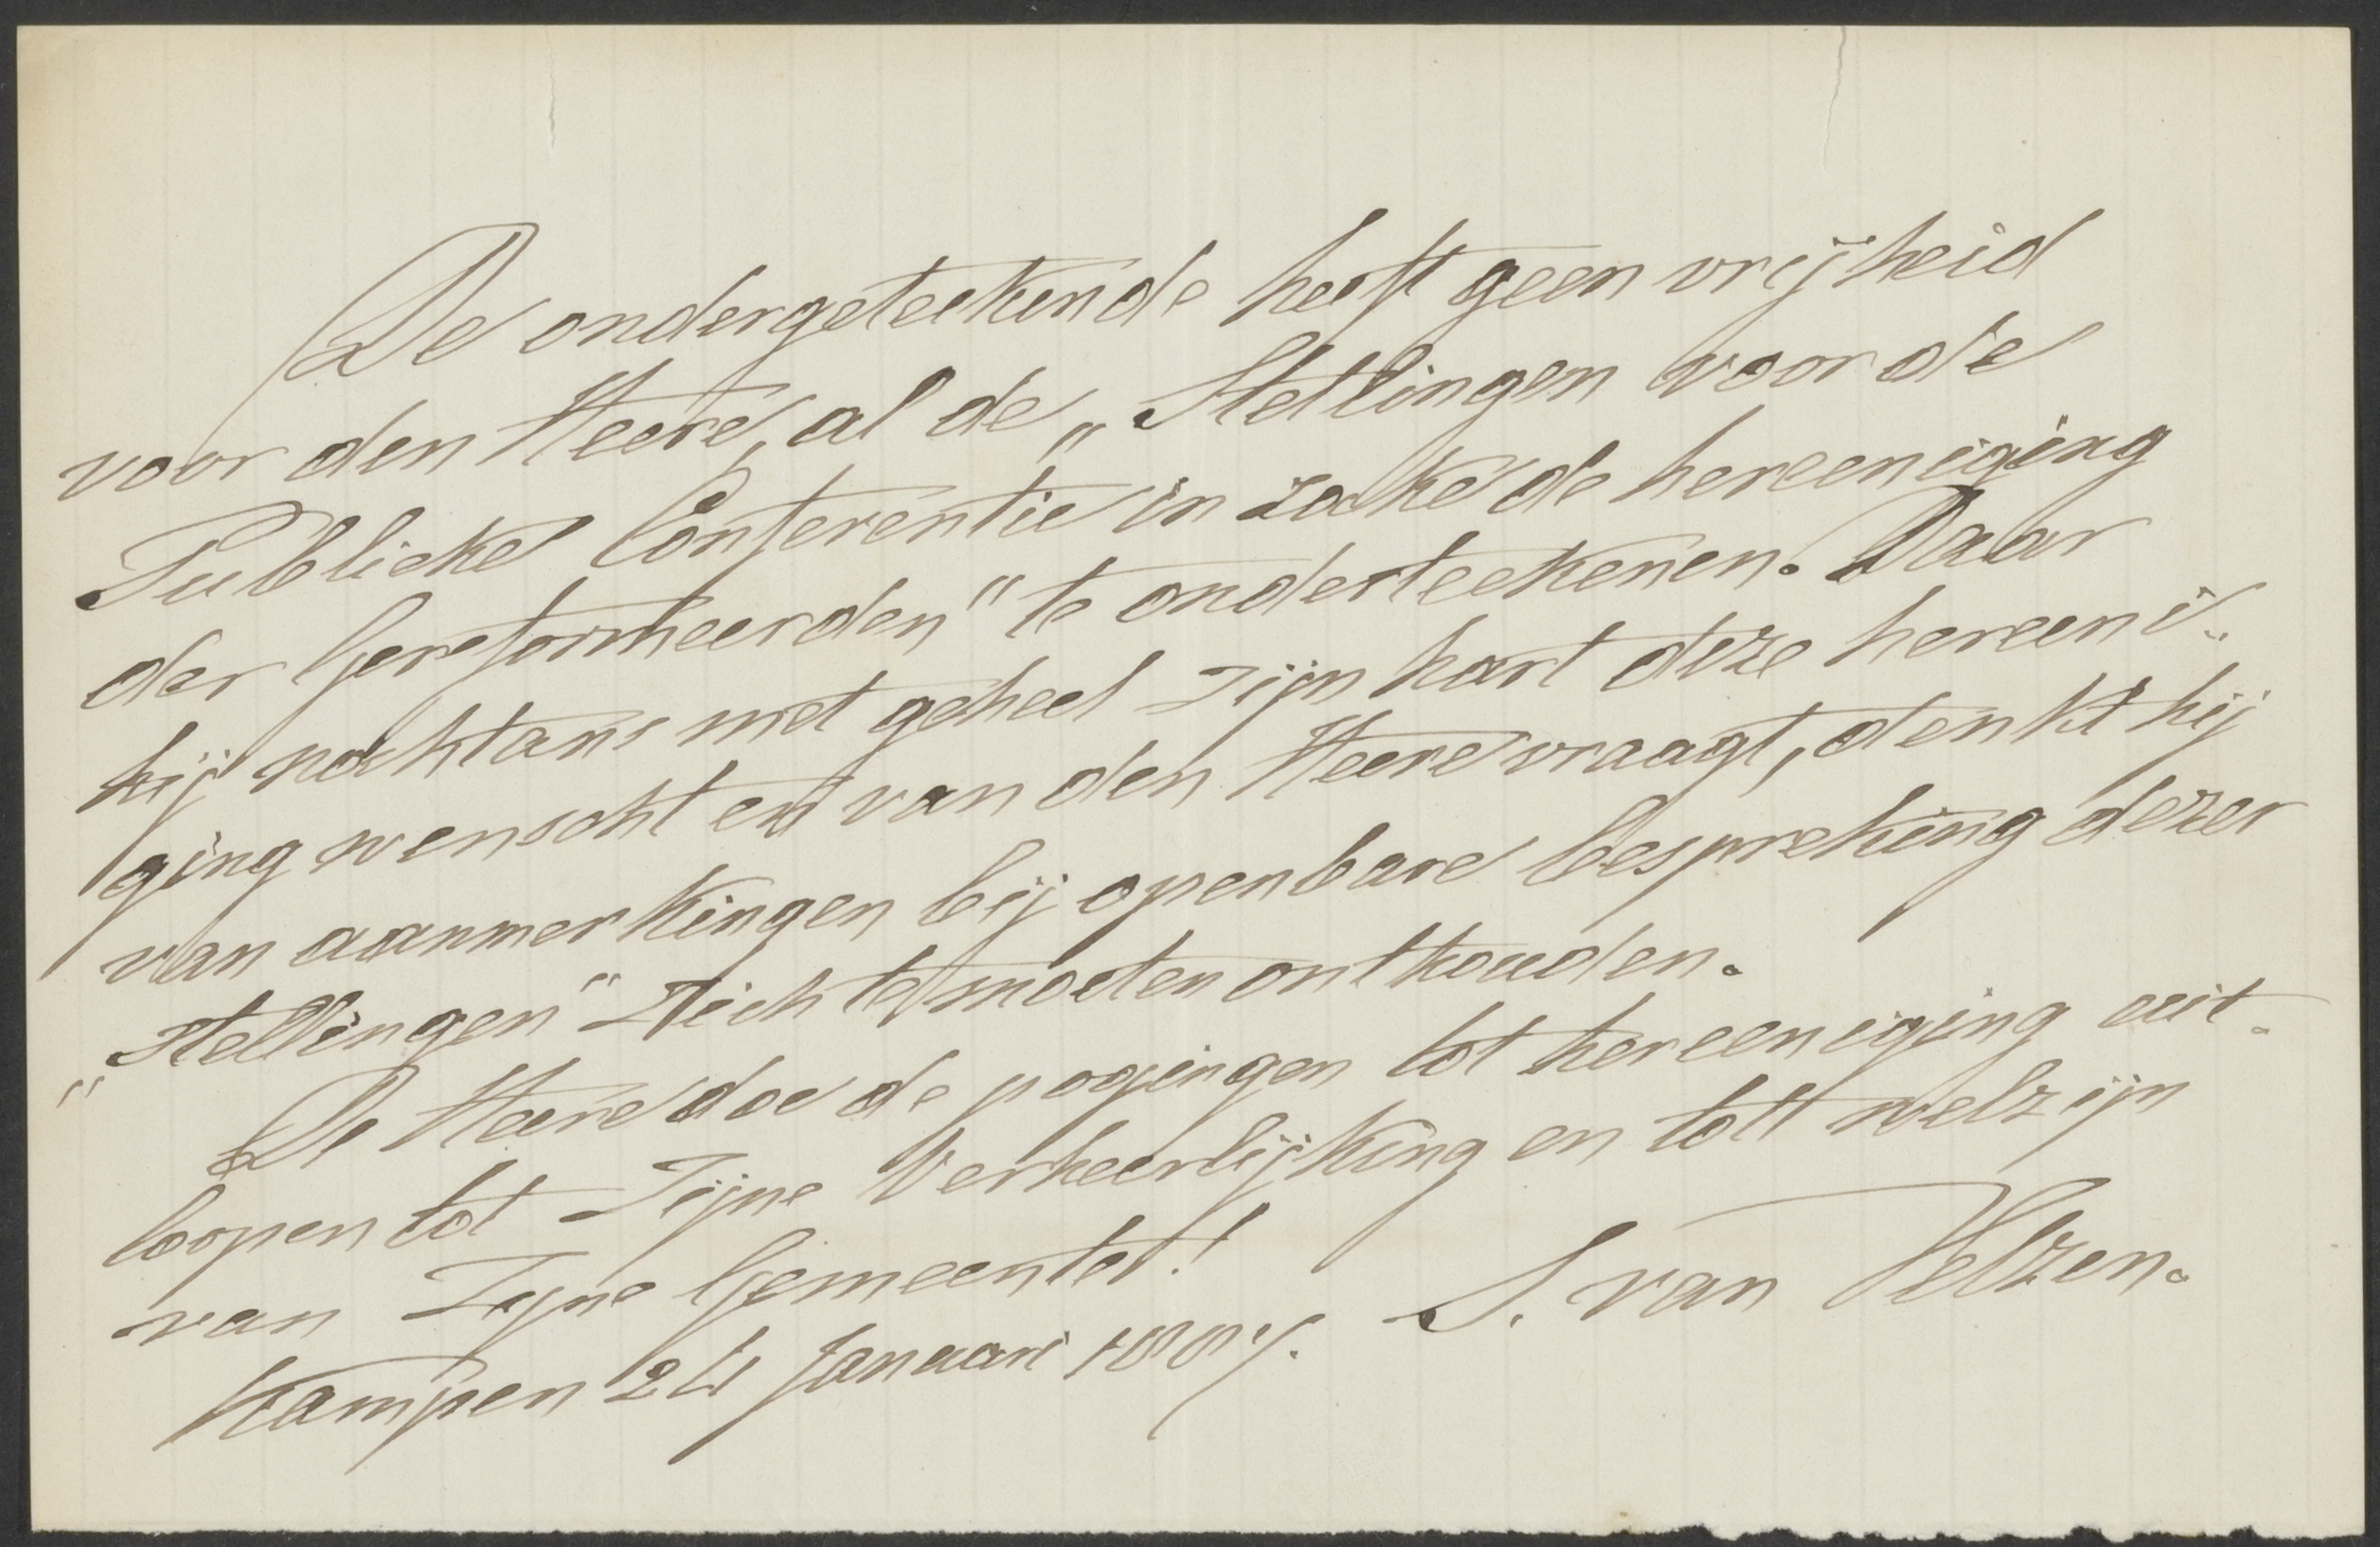 De ondergeteekende heeft geen vrijheid
voor den Heere, al de „Stellingen voor de
Publieke Conferentie in zake de hereeniging
der Gereformeerden" te onderteekenen. Daar
hij nochtans met geheel zijn hart deze hereeni-
ging wenscht en van den Heere vraagt, denkt hij
van aanmerkingen bij openbare bespreking dezer
„Stellingen" zich te moeten onthouden.
De Heere doe de pogingen tot hereeniging uit-
loopen tot Zijne Verheerlijking en tott welzijn
van Zijne Gemeente!
Kampen 24 Januari 1887. S. van Velzen.